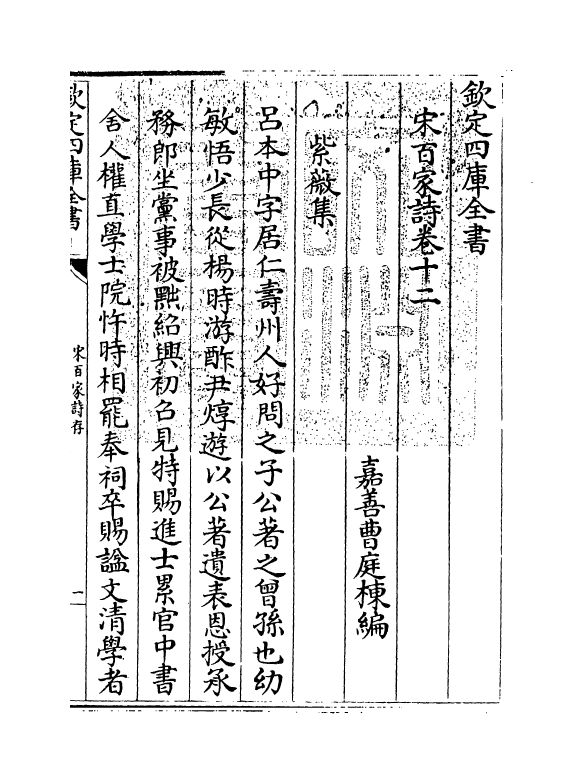 欽定四庫全書
宋百家詩卷十二
嘉善曹庭棟編
紫薇集
呂本中字居仁壽州人好問之子公著之曾孫也幼
敏悟少長從楊時游酢尹焞遊以公著遺表恩授承
務郎坐黨事被黜紹興初召見特賜進士累官中書
舍人權直學士院忤時相罷奉祠卒賜諡文清學者
欽定四庫全書
宋百家詩存